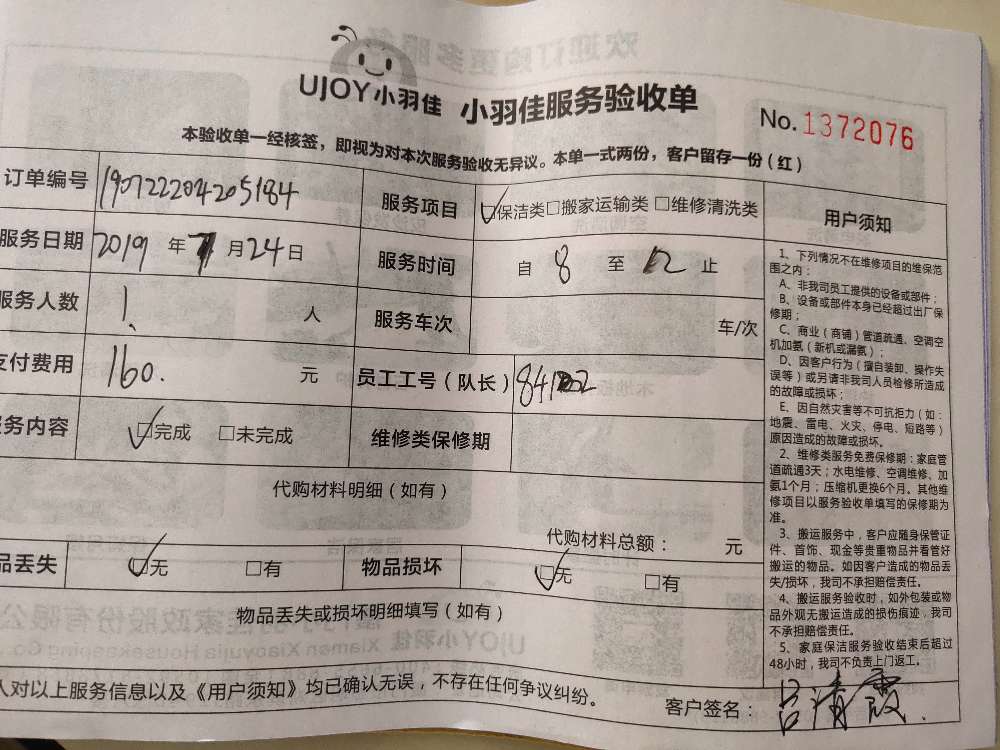 UJOY小羽佳 小羽佳服务验收单
No.1372076
本验收单一经核签，即视为对本次服务验收无异议。本单一式两份，客户留存一份（红）
订单编号 190722204205184 服务项目 保洁类 □搬家运输类 □维修清洗类
服务日期 2019 年 7 月 24 日 服务时间 自 8 至 12 止
服务人数 1. 人 服务车次 车/次
支付费用 160. 元 员工工号（队长）
务内容 □完成 □未完成 维修类保修期
代购材料明细（如有）
代购材料总额： 元
品丢失 □无 □有 物品损坏 □无 □有
物品丢失或损坏明细填写（如有）
人对以上服务信息以及《用户须知》均已确认无误，不存在任何争议纠纷。
客户签名：吕清霞.
用户须知
1、下列情况不在维修项目的维保范
围之内：
A、非我司员工提供的设备或部件；
B、设备或部件本身已经超过出厂保
修期；
C、商业（商铺）管道疏通、空调空
机加氨（新机或漏氨）；
D、因客户行为（擅自装卸、操作失
误等）或另请非我司人员检修所造成
的故障或损坏；
E、因自然灾害等不可抗拒力（如：
地震、雷电、火灾、停电、短路等）
原因造成的故障或损坏。
2、维修类服务免费保修期：家庭管
道疏通3天；水电维修、空调维修、加
氨1个月；压缩机更换6个月。其他维
修项目以服务验收单填写的保修期为
准。
3、搬运服务中，客户应随身保管证
件、首饰、现金等贵重物品并看管好
搬运的物品。如因客户造成的物品丢
失/损坏，我司不承担赔偿责任。
4、搬运服务验收时，如外包装或物
品外观无搬运造成的损伤痕迹，我司
不承担赔偿责任。
5、家庭保洁服务验收结束后超过
48小时，我司不负责上门返工。